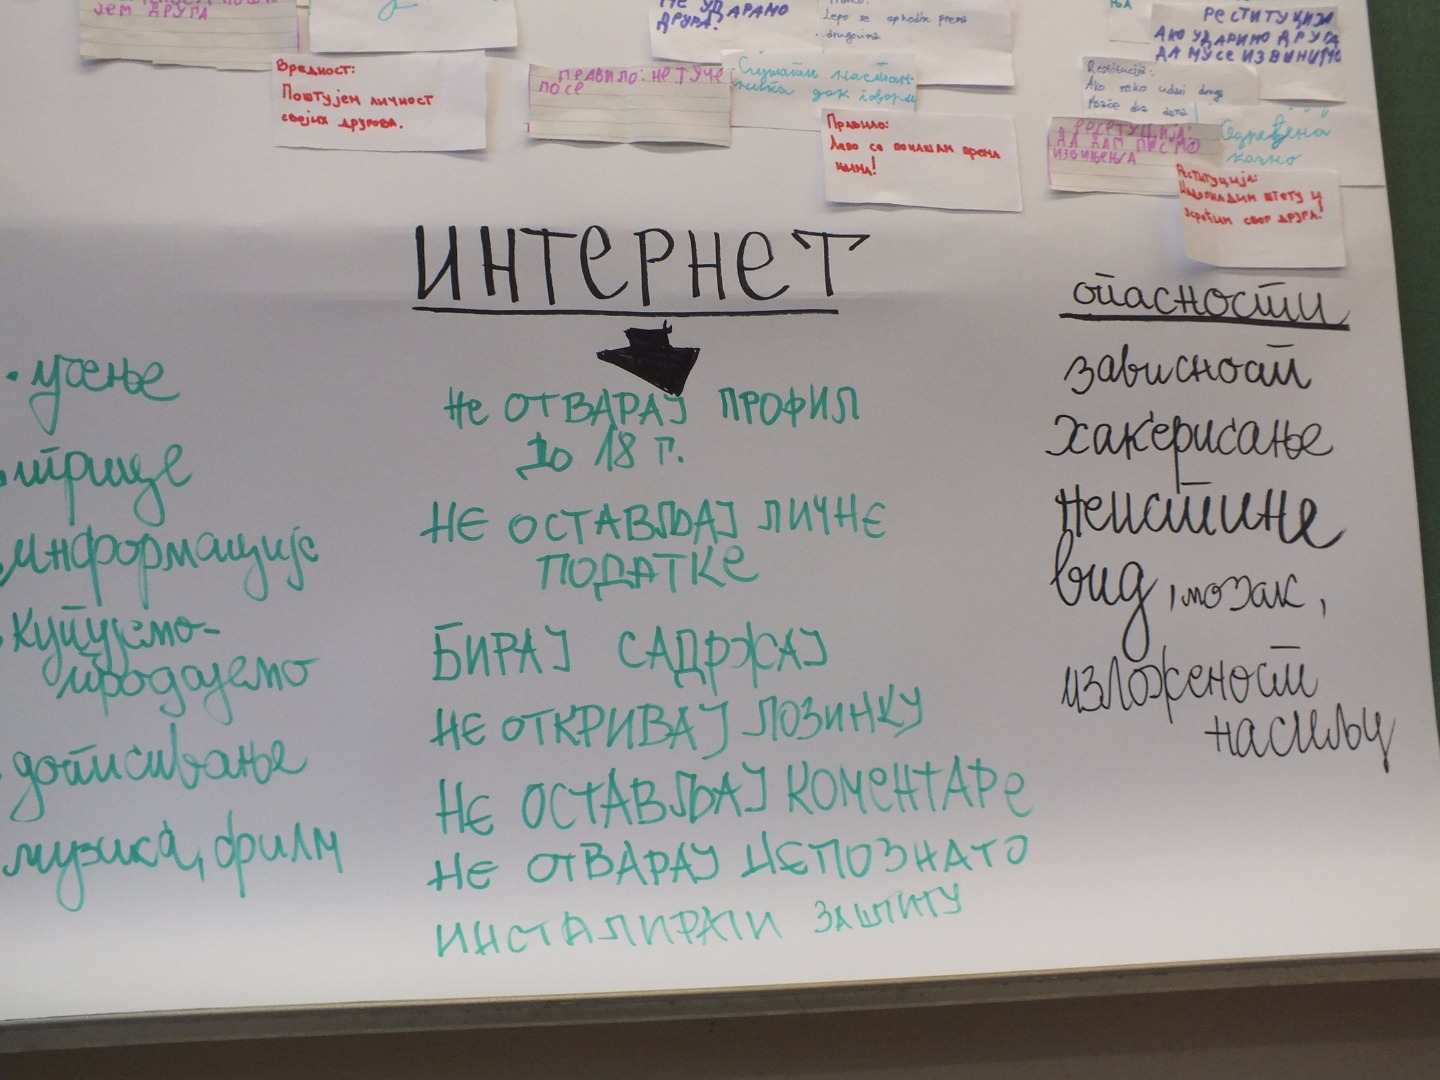 ЈЕМ ДРУГА
НЕ УДАРАМО
ДРУГА!
Lepo se ophodim prema
drugovima
РЕСТИТУЦИЈА
АКО УДАРИМО ДРУГА
ДА МУ СЕ ИЗВИНИМО
Вредност:
Поштујем личност
својих другова.
ПРАВИЛО: НЕ ТУЧЕ
МО СЕ
Слушати настав-
ника док говори
Правило:
Лепо се понашам према
њима!
Restitucija:
Ako neko udari druga
РЕСЕТУЦИЈА:
ДА ДАМ ПИСМО
ИЗВИЊЕЊА
Одређена
казна
Реституција:
Надокнадим штету и
усрећим свог друга.
ИНТЕРНЕТ
• учење
игрице
информације
Купујемо-
продајемо
дописивање
музика, филм
Не ОТВАРАЈ ПРОФИЛ
До 18 г.
НЕ ОСТАВЉАЈ ЛИЧНЕ
ПОДАТКЕ
БИРАЈ САДРЖАЈ
НЕ ОТКРИВАЈ ЛОЗИНКУ
НЕ ОСТАВЉАЈ КОМЕНТАРЕ
НЕ ОТВАРАЈ НЕПОЗНАТО
ИНСТАЛИРАТИ ЗАШТИТУ
опасности
зависност
хакерисање
неистине
вид, мозак,
изложеност
насиљу